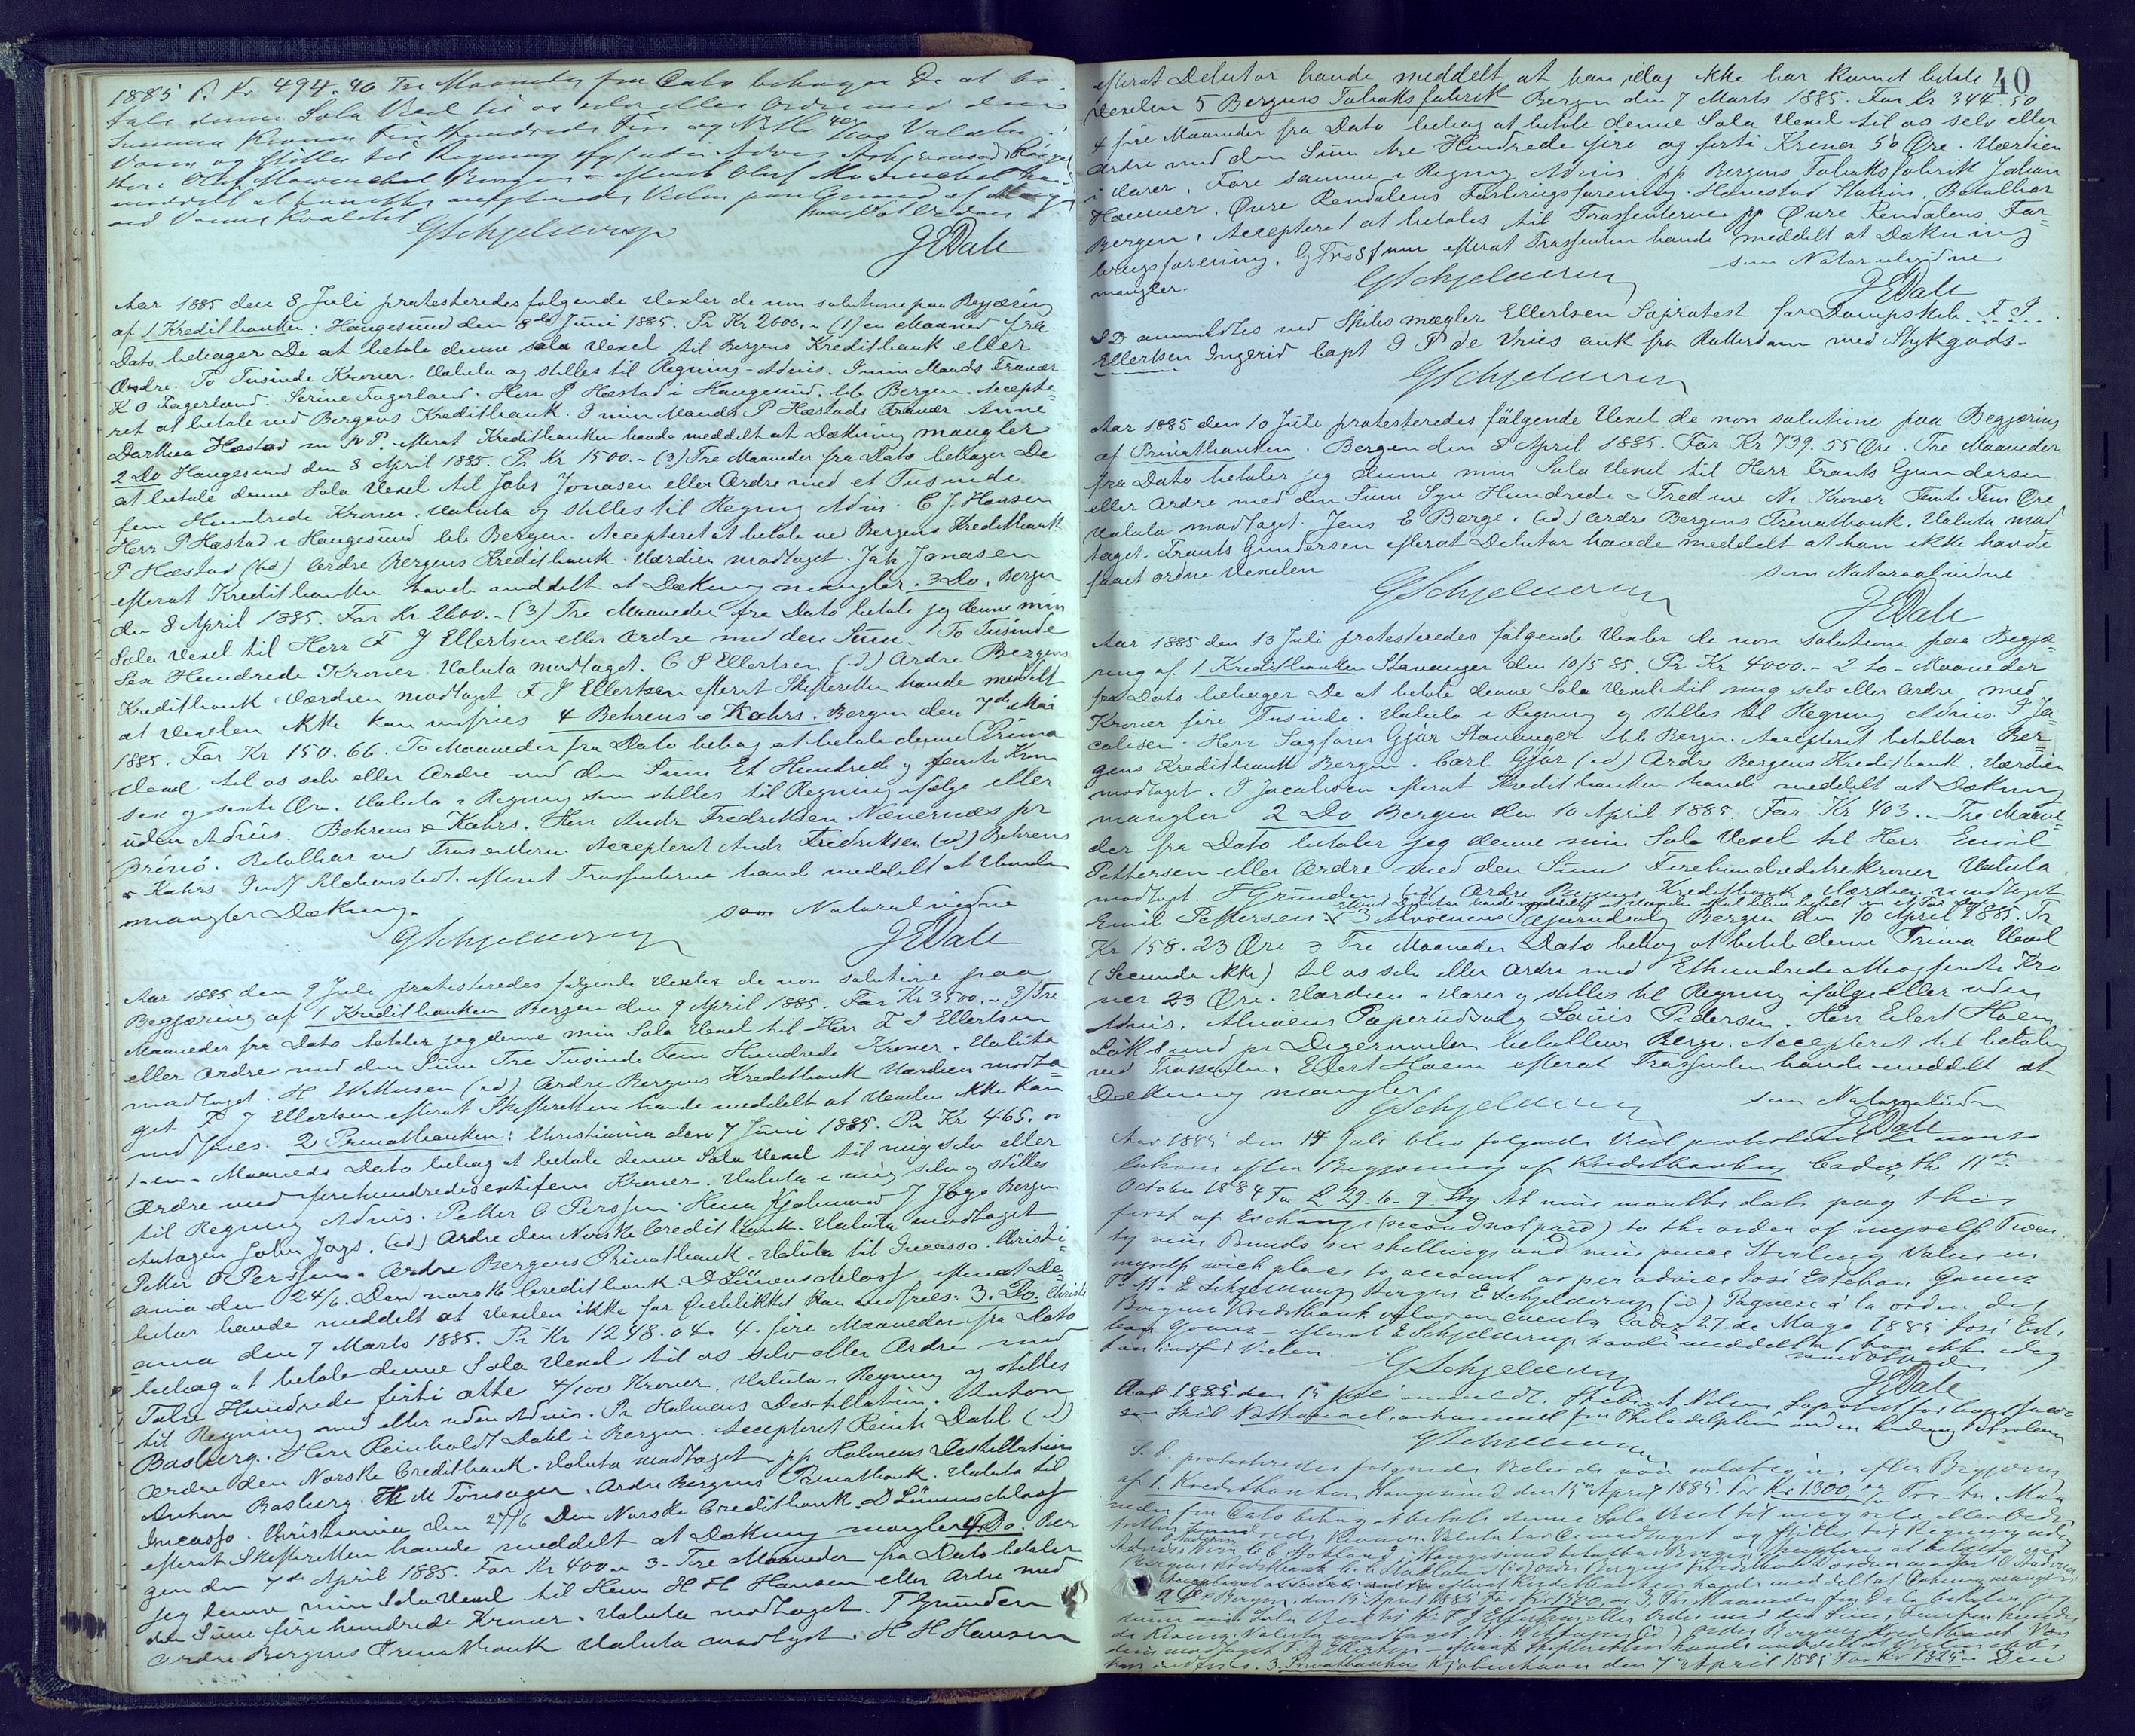 1885 P. Kr 494.40 Tre Maaneder fra Dato behager De at be-
tale denne Sola Vexel til os selv eller Ordre med den
Summa Kroner Fire Hundrede Fire og Nitti 40/100 Valuta i
Varer og stilles til Regning
meddelt at han ikke
ved Varens Kvalitet
GSchjelderup
JEDale
Aar 1885 den 8 Juli protesteredes følgende Vexler de non solutione paa Begjæring
af 1 Kreditbanken: Haugesund den 8de Juni 1885. Pr Kr 2000.- (1) en Maaned fra
Dato behager De at betale denne sola Vexel til Bergens Kreditbank eller
Ordre. To Tusinde Kroner. Valuta og stilles til Regning - Advis. I min Mands Fravær
K O Fagerland. Serine Fagerland. Herr P Hæstad i Haugesund. bb Bergen. Accepte-
ret at betale ved Bergens Kreditbank. I min Mands P Hæstads Fravær Anne
Darthea Hæstad m N P. efterat Kreditbanken havde meddelt at Dækning mangler
2 Do Haugesund den 8 April 1885. Pr Kr 1500.- (3) Tre Maaneder fra Dato behager De
at betale denne Sola Vexel til Jahs Jonasen eller Ordre med et Tusinde
fem Hundrede Kroner. Valuta og stilles til Regning Advis. C J. Hansen
Herr P Hæstad i Haugesund bb Bergen. Accepteret at betale ved Bergens Kreditbank
P Hæstad (id) Ordre Bergens Kreditbank. Værdien modtaget. Jah Jonasen
efterat Kreditbanken havde meddelt at Dækning mangler. 3 Do. Bergen
den 8 April 1885. For Kr 2600.- (3) Tre Maaneder fra Dato betaler jeg denne min
Sola Vexel til Herr F J Ellertsen eller Ordre med den Sum To Tusinde
Sex Hundrede Kroner. Valuta modtaget. C S Ellertsen (id) Ordre Bergens
Kreditbank Værdien modtaget F J Ellertsen efterat Skifteretten havde meddelt
at Vexelen ikke kan indfries 4 Behrens & Kahrs. Bergen den 7de Mai
1885. For Kr 150.66. To Maaneder fra Dato behag at betale denne Prima
Vexel til os selv eller Ordre med den Sum Et Hundrede og femti Kroner
sex og sexti Øre. Valuta i Regning som stilles til Regning ifølge eller
uden Advis. Behrens & Kahrs. Herr Andr Fredriksen Nævernæs pr
Brønø. Betalbar ved Trassenterne. Accepteret Andr Fredriksen (id) Behrens
& Kahrs. efterat Trassenterne havde meddelt at Vexelen
mangler Dækning.
som Notarialvidne
GSchjelderup
JEDale
Aar 1885 den 9 Juli protesteredes følgende Vexler de non solutione paa
Begjæring af 1 Kreditbanken Bergen den 9 April 1885. For Kr 3500.- 3) Tre
Maaneder fra Dato betaler jeg denne min Sola Vexel til Herr F J Ellertsen
eller Ordre med den Sum Tre Tusinde Fem Hundrede Kroner. Valuta
modtaget. H Wittusen (id) Ordre Bergens Kreditbank Værdien modta-
get F J Ellertsen efterat Skifteretten havde meddelt at Vexelen ikke kan
indfries. 2 Privatbanken: Christiania den 7 Juni 1885. Pr Kr 465.00
1-en- Maaneds Dato behag at betale denne Sola Vexel til mig selv eller
Ordre med firehundredesextifem Kroner. Valuta i mig selv og stilles
til Regning Advis. Petter O Perssen. Herr Hjalmar J Joys Bergen
Antagen John Joys. (id) Ordre den Norske Creditbank. Valuta modtaget
Petter O Perssen. Ordre Bergens Privatbank. Valuta til Incasso. Christi-
ania den 24/6. Den norske Creditbank D Lünenschloss efterat De-
bitor havde meddelt at Vexelen ikke for Øieblikket kan indfries. 3. Do. Christi
ania den 7 Marts 1885. Pr Kr 1248.04. 4. fire Maaneder fra Dato
behag at betale denne Sola Vexel til os selv eller Ordre med
Tolv Hundrede førti otte 4/100 Kroner. Valuta i Regning og stilles
til Regning med eller uden Advis. Pr Halmens Destillation. Anton
Basberg. Herr Reinholdt Dahl i Bergen. Accepteret Reinh Dahl (id)
Ordre den Norske Creditbank. Valuta modtaget. pp Halmens Destillation
Anton Basberg. M Tönsager. Ordre Bergens Privatbank. Valuta til
Incasso. Christiania den 24/6 Den Norske Creditbank. D Lünenschloss
efterat Skifteretten havde meddelt at Dækning mangler 4 Do. Ber
gen den 7de April 1885. For Kr 400.- 3 - Tre Maaneder fra Dato betaler
jeg denne min Sola Vexel til Herr H H Hansen eller Ordre med
den Sum fire hundrede Kroner. Valuta modtaget. T Grunden
Ordre Bergens Privatbank Valuta modtaget. H H Hansen
40
efterat Debitor havde meddelt, at han idag ikke har kunnet betale
Vexelen 5 Bergens Tobaksfabrik Bergen den 7 Marts 1885. For Kr 344.50
4 fire Maaneder fra Dato behag at betale denne Sola Vexel til os selv eller
Ordre med den Sum tre Hundrede fire og førti Kroner 50 Øre. Værdien
i Varer. Føre samme i Regning Advis. pp Bergens Tobaksfabrik Johan
Hammer. Øvre Rendalens Forbrugsforening. Hanestad Station. Betalbar
Bergen. Accepteret at betales til Trassenterne pp Øvre Rendalens For-
brugsforening. efterat Trassenten havde meddelt at Dækning
mangler.
som Notarialvidne
GSchjelderup
JEDale
S D anmeldtes ved Skibsmægler Ellertsen Søprotest for Dampskib. F. J.
Ellertsen Ingerid Capt I P de Vries ank fra Rotterdam med Stykgods.
GSchjelderup
Aar 1885 den 10 Juli protesteredes følgende Vexel de non solutione paa Begjæring
af Privatbanken. Bergen den 8 April 1885. For Kr 739.55 Øre. Tre Maaneder
fra Dato betaler jeg denne min Sola Vexel til Herr Frants Gundersen
eller Ordre med den Sum Syv Hundrede & Tredive Ni Kroner Femti Fem Øre
Valuta modtaget. Jens E Berge. (id) Ordre Bergens Privatbank. Valuta mod
taget. Frants Gundersen efterat Debitor havde meddelt at han ikke havde
faaet ordne Vexelen
som Notarialvidne
GSchjelderup
JEDale
Aar 1885 den 13 Juli protesteredes følgende Vexler de non solutione paa Begjæ-
ring af 1 Kreditbanken Stavanger den 10/5 85. Pr Kr 4000.- 2 to - Maaneder
fra Dato behager De at betale denne Sola Vexel til mig selv eller Ordre med
Kroner fire Tusinde. Valuta i Regning og stilles til Regning Advis. I Ja-
cobsen. Herr Sagfører Gjør Stavanger bb Bergen. Accepteret betalbar Ber-
gens Kreditbank Bergen. Carl Gjør (id) Ordre Bergens Kreditbank. Værdien
modtaget. I Jacobsen efterat Kreditbanken havde meddelt at Dækning
mangler 2 Do Bergen den 10 April 1885. For Kr 403.- Tre Maane-
der fra Dato betaler jeg denne min Sola Vexel til Herr Emil
Pettersen eller Ordre med den Sum Firehundredetrekroner Valuta
modtaget. T Grunden (id) Ordre Bergens Kreditbank. Værdien modtaget
efterat Debitor havde meddelt at Vexelen skal blive
Emil Pettersen 3 Alvøens Papirudsalg Bergen den 10 April 1885. Pr
Kr 158.23 Øre 3 Tre Maaneder Dato behag at betale denne Prima Vexel
(Secunda ikke) til os selv eller Ordre med Ethundrede otte og femti Kro
ner 23 Øre. Værdien i Varer og stilles til Regning ifølge eller uden
Advis. Alvøens Papirudsalg Louis Pedersen. Herr Eilert Hoem
Løksund pr Digermulen betalbar Bergen. Accepteret til betaling
ved Trassenten. Eilert Hoem efterat Trassenten havde meddelt at
Dækning mangler
som Notarialvidne
GSchjelderup
JEDale
Aar 1885 den 14 Juli blev følgende Vexel protesteret de non so
lutione efter Begjæring af Kreditbanken Cadiz the 11th
October 1884 For £ 29.6.9 Stg At nine months date pay this
first of Exchange (second not paid) to the order of myself Twen
ty nine Pounds six shillings and nine pence Sterling Value in
myself wich place to account as per advice José Esteban Gomez
To Mr E Schjelderup Bergen E Schjelderup (id) Paguese á la orden del
Bergens Kreditbank valor en cuenta Cadiz 27 de Mayo 1885 José Este
ban Gomez - efterat E Schjelderup havde meddelt at han ikke idag
kan indfri Vexlen.
GSchjelderup
JEDale
Aar 1885 den 15 Juli anmeldte
Skib Nathanael, ankommet fra Philadelphia med en Ladning Petroleum
GSchjelderup
S. D. protesteredes følgende Vexler de non solutione efter Begjæring
af 1. Kreditbanken Haugesund den 15 April 1885. Pr Kr 1300
neder fra Dato behag at betale denne Sola Vexel til mig selv eller Ordre
2 Do Bergen den 15 April 1885 For Kr 1500
kan indfries. 3. Privatbanken Kjøbenhavn den 7 April 1885 For Kr 1325.- Den